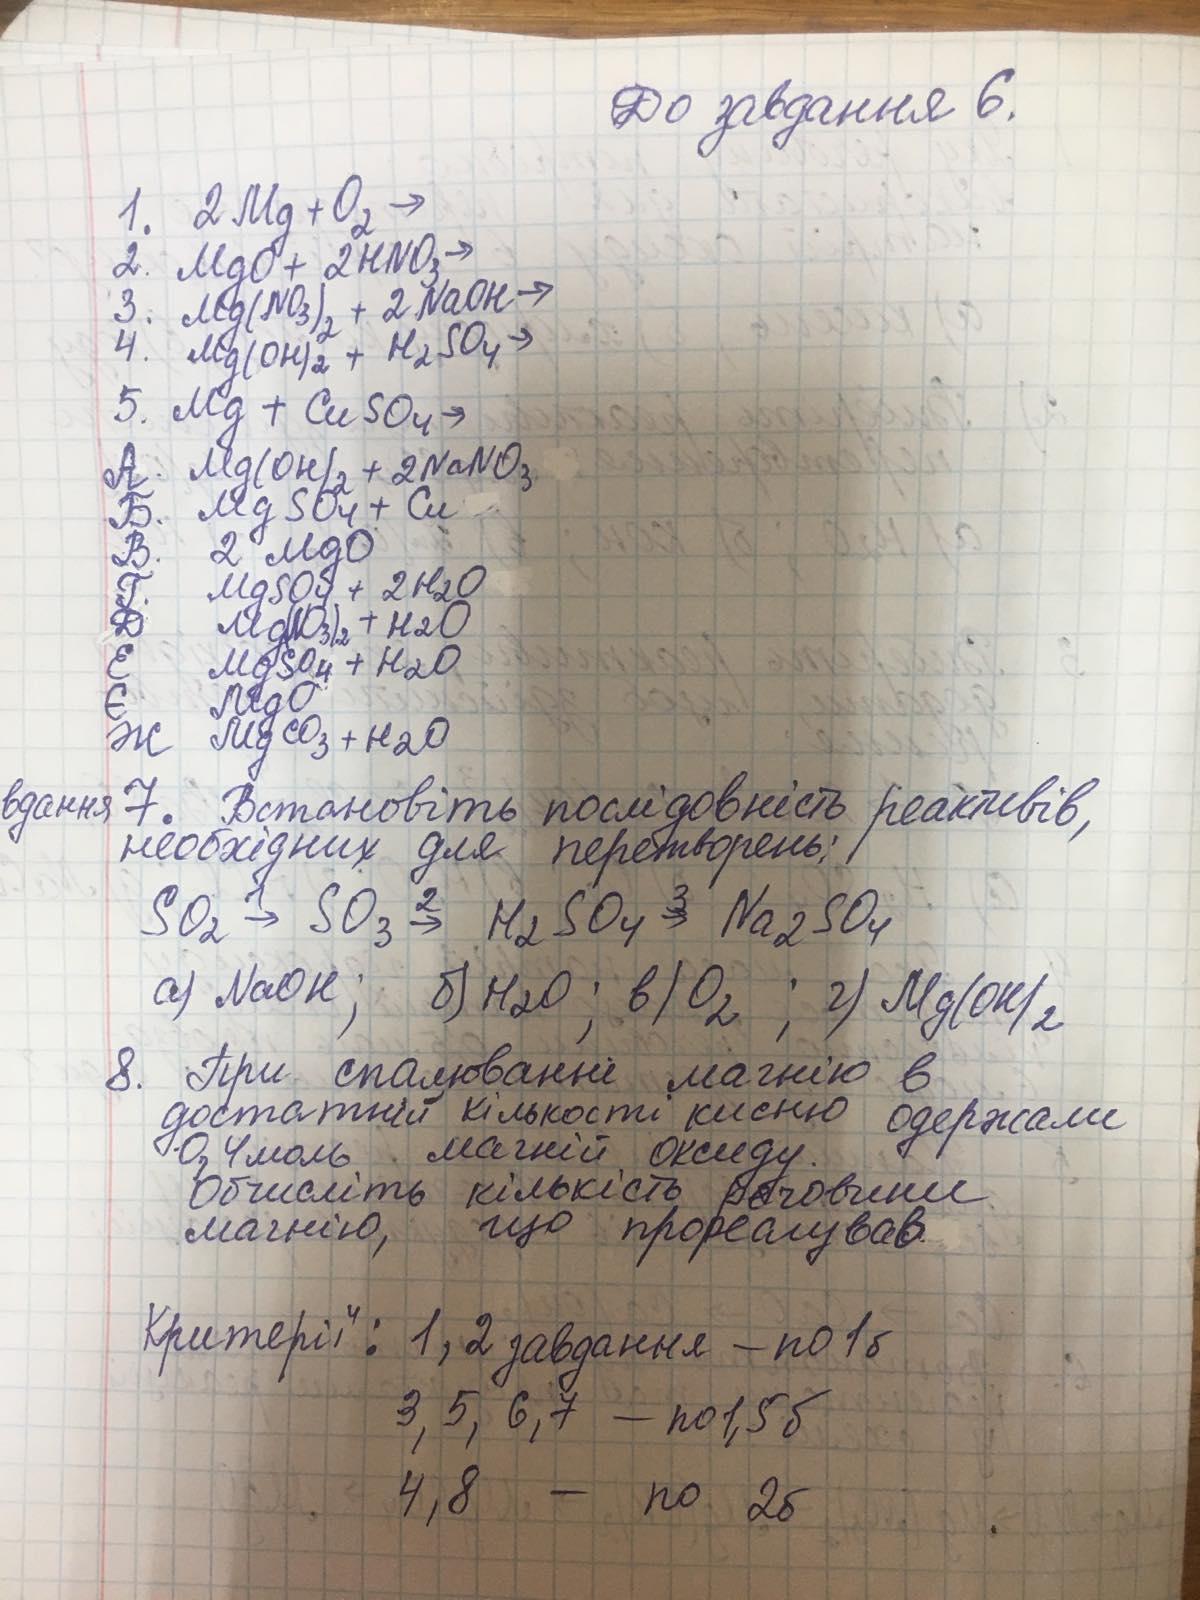 До завдання 6.
1. 2Mg + O₂ →
2. MgO + 2HNO₃ →
3. Mg(NO₃)₂ + 2NaOH →
4. Mg(OH)₂ + H₂SO₄ →
5. Mg + CuSO₄ →
А. Mg(OH)₂ + 2NaNO₃
Б. MgSO₄ + Cu
В. 2 MgO
Г. MgSO₄ + 2H₂O
Д Mg(NO₃)₂ + H₂O
Е MgSO₄ + H₂O
Є MgO
Ж MgCO₃ + H₂O
вдання 7. Встановіть послідовність реактивів,
необхідних для перетворень:
SO₂ →¹ SO₃ →² H₂SO₄ →³ Na₂SO₄
а) NaOH; б) H₂O; в) O₂; г) Mg(OH)₂
8. При спалюванні магнію в
достатній кількості кисню одержали
0,4моль магній оксиду.
Обчисліть кількість речовини
магнію, що прореагував.
Критерії: 1, 2 завдання – по 1б
3, 5, 6, 7 – по 1,5б
4, 8 – по 2б